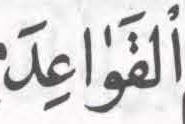 الْقَوٰاعِدَ